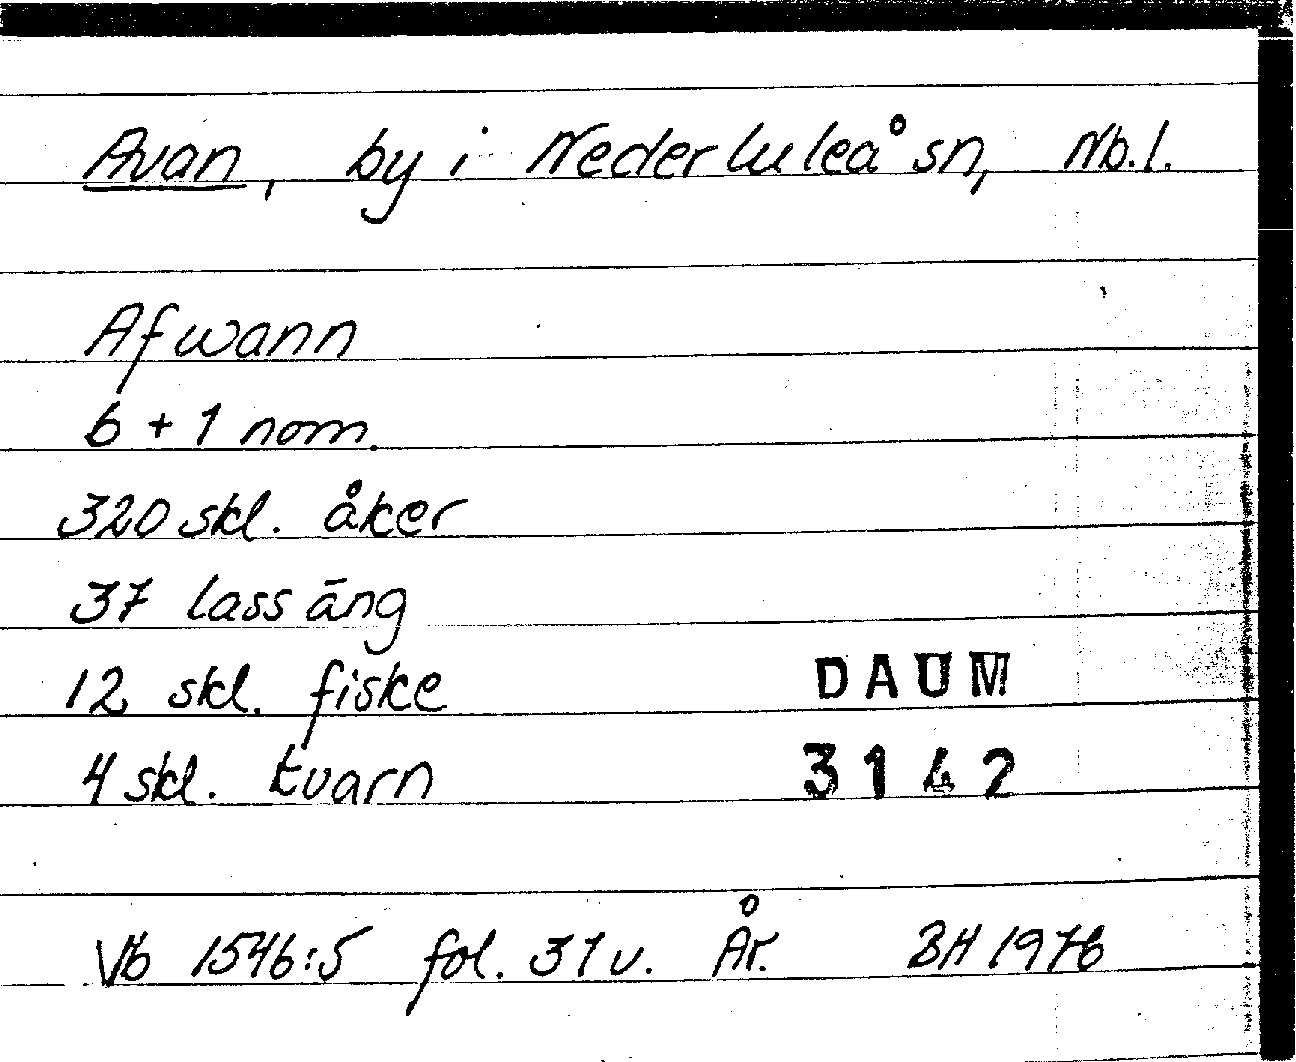 Avan, by i Nederluleå sn, Nb.l.
Afwann
6 + 1 nom.
320 skl. åker
37 lass äng
12 skl. fiske
DAUM
4 skl. kvarn
3142
Vb 1546:5 fol. 31v. År. BH 1976